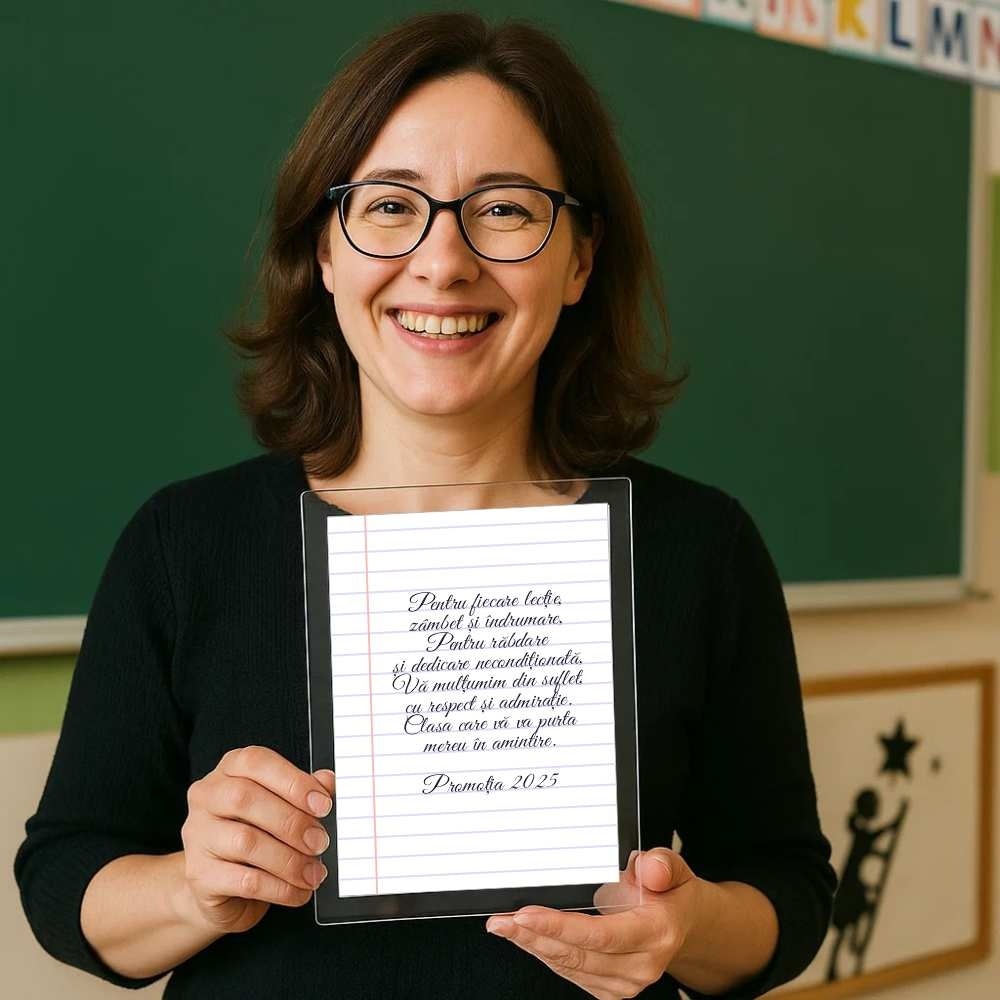 K L M N
Pentru fiecare lecție,
zâmbet și îndrumare,
Pentru răbdare
și dedicare necondiționată,
Vă mulțumim din suflet,
cu respect și admirație.
Clasa care vă va purta
mereu în amintire.
Promoția 2025